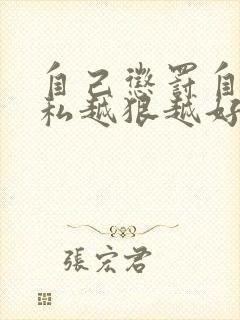 自己懲罰自
私越狠越好
張宏君